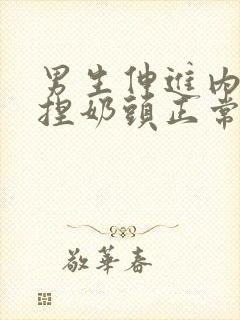 男生伸進內
捏奶頭正常
敬華春